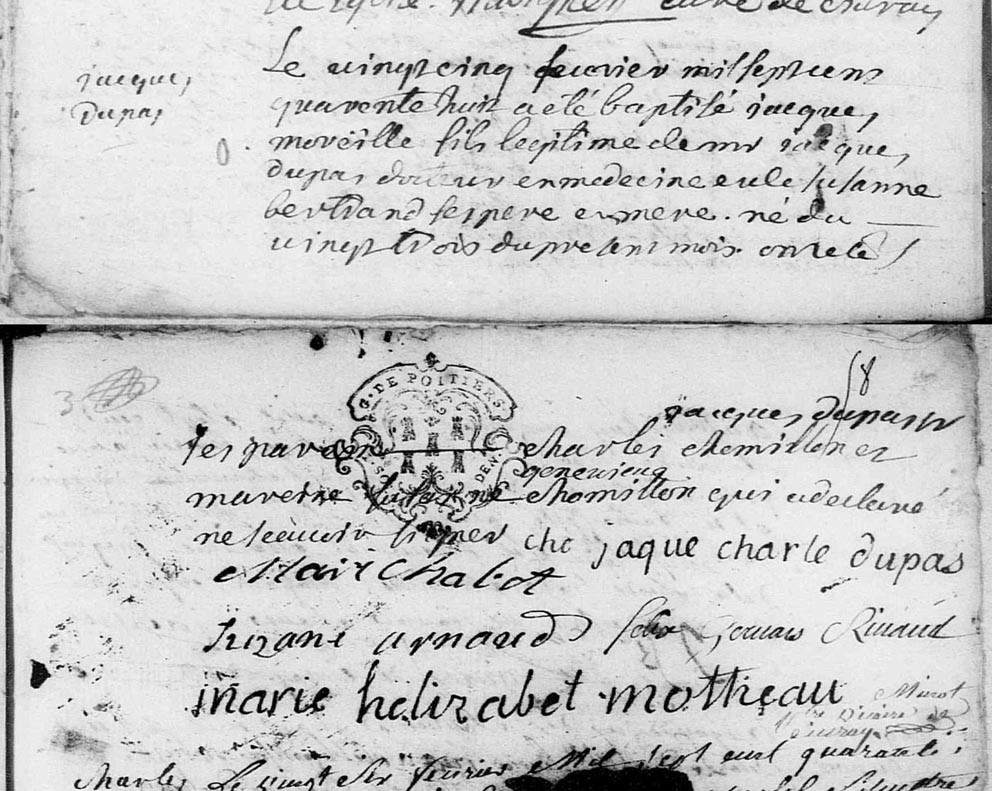 curé de
jacques
dupas
Le vingt cinq feuvrier mil sept cens
quarente huit a eté baptisé jacques
moreille fils legitime de mr jacques
dupas docteur en medecine et de susanne
bertrand ses pere et mere. né du
vingt trois du present mois. ont eté
8
G. DE POITIERS
jacques dupas
3
ses parein charles chemillon et
genevieve
mareine susanne chomillon qui a declaré
ne scavoir signer che jaque charle dupas
Mair Chabot
suzane arnaud Gervais Rinaud
marie helizabet motheau
charles Le vingt six feuvrier Mil sept cent quarante